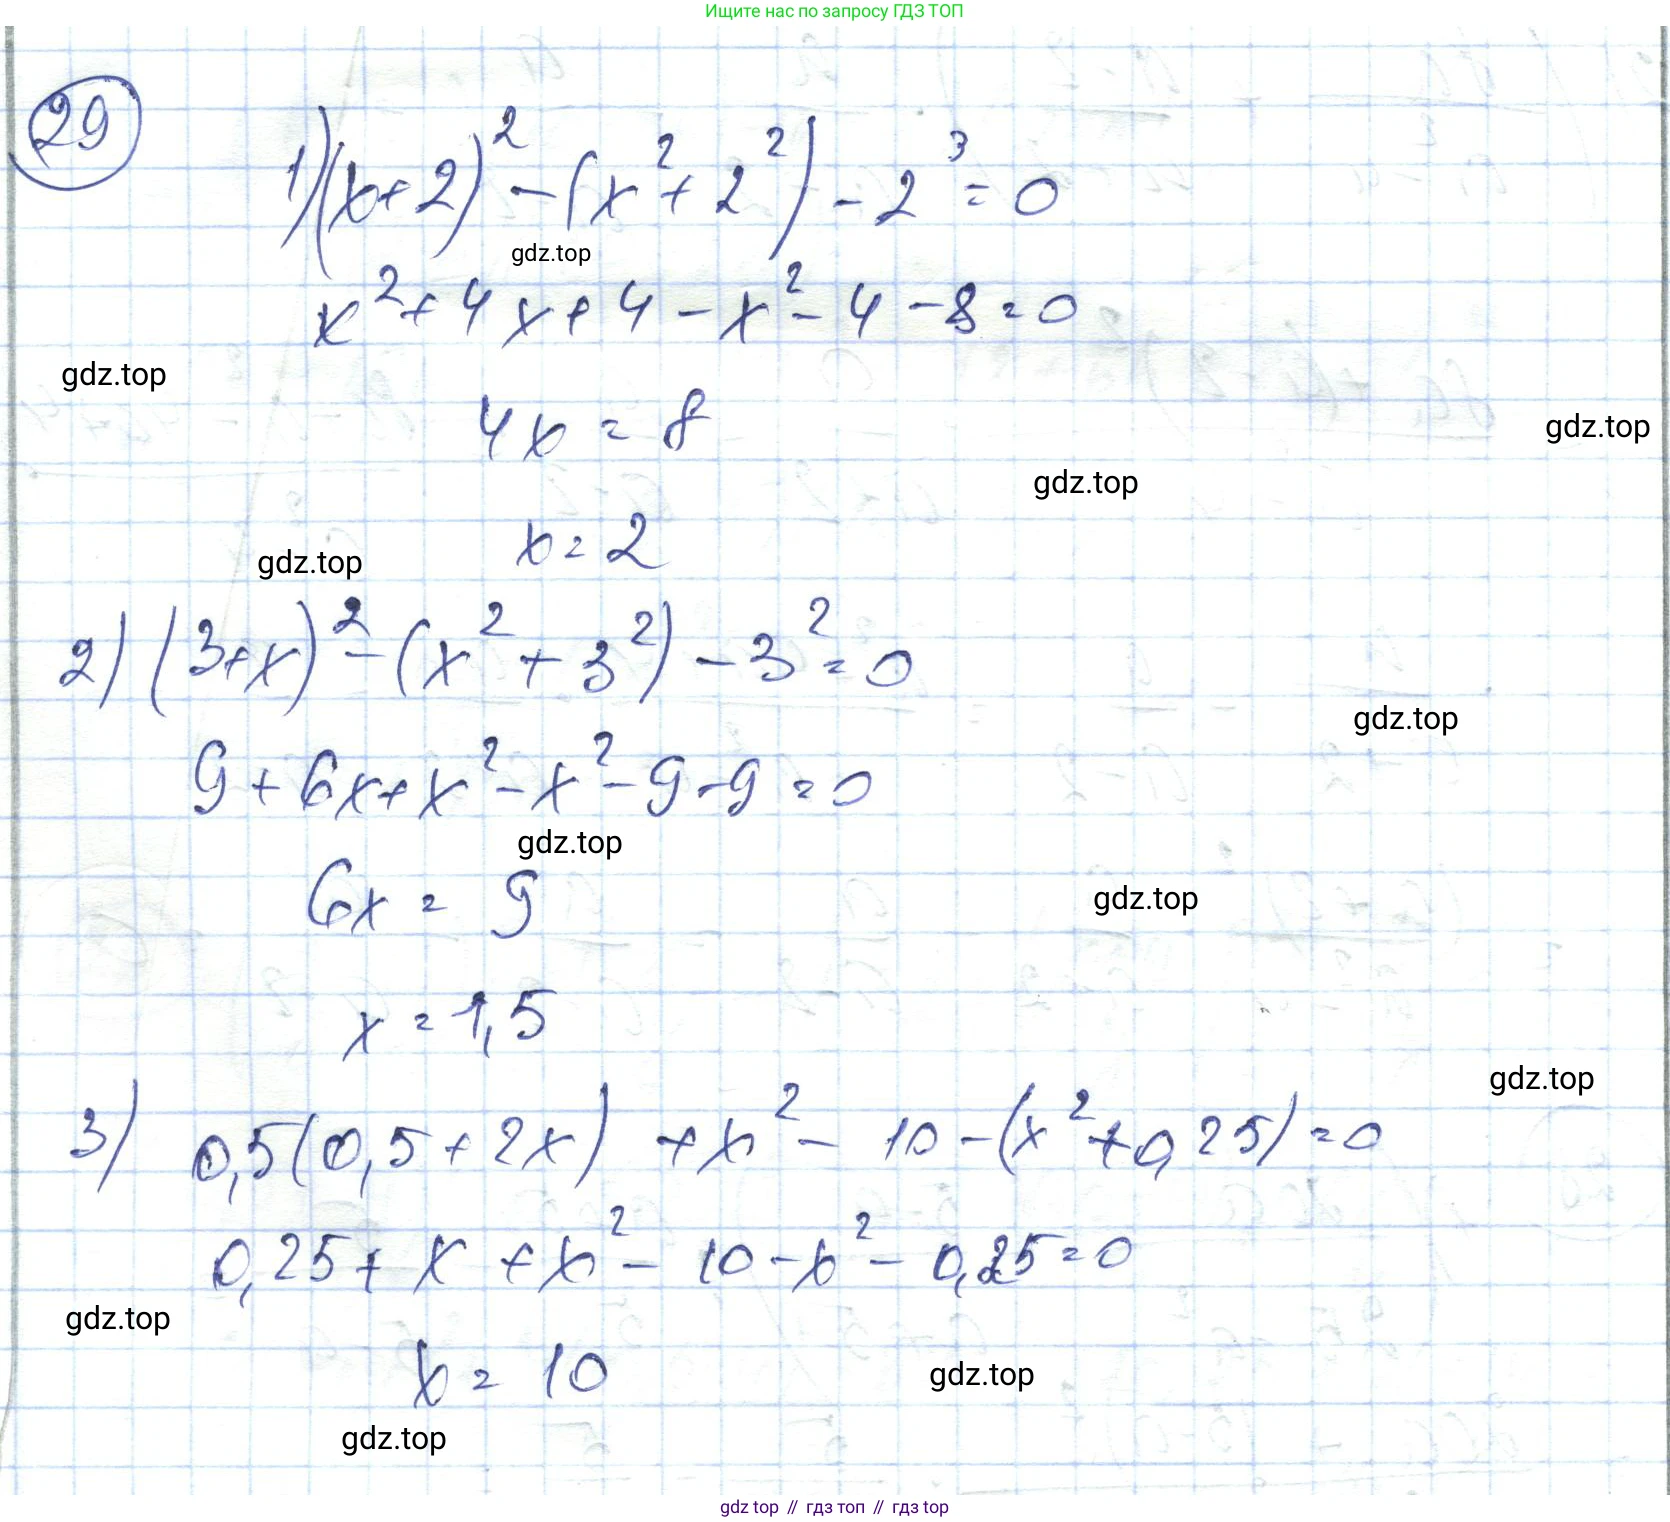 Ищите нас по запросу ГДЗ ТОП
29
1) (x+2)² - (x² + 2²) - 2³ = 0
gdz.top
x² + 4x + 4 - x² - 4 - 8 = 0
gdz.top
4x = 8
gdz.top
gdz.top
x = 2
gdz.top
2) (3+x)² - (x² + 3²) - 3² = 0
gdz.top
9 + 6x + x² - x² - 9 - 9 = 0
gdz.top
6x = 9
gdz.top
x = 1,5
gdz.top
3) 0,5(0,5 + 2x) + x² - 10 - (x² + 0,25) = 0
0,25 + x + x² - 10 - x² - 0,25 = 0
gdz.top
x = 10
gdz.top
gdz.top
gdz top // гдз топ // гдз top